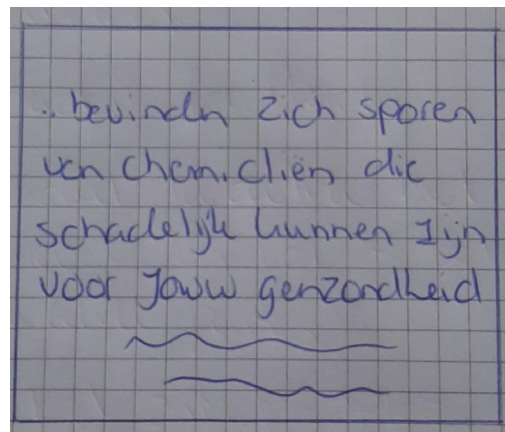 .. bevinden zich sporen
van chemicliën die
schadelijk kunnen zijn
voor jouw genzondheid